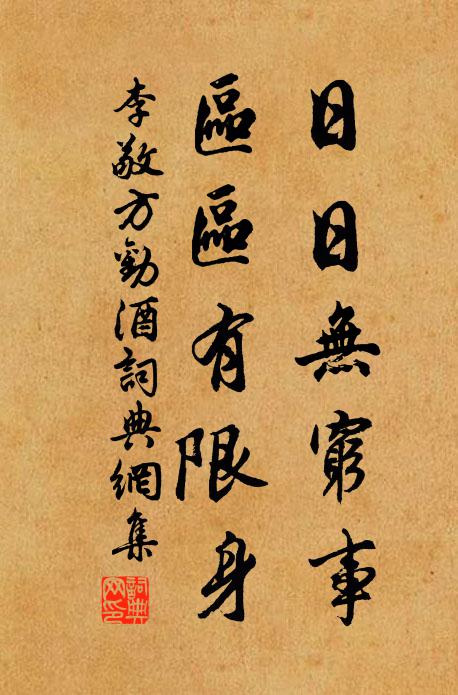 日日無窮事
區區有限身
李敬方勸酒詞典網集
詞典網印